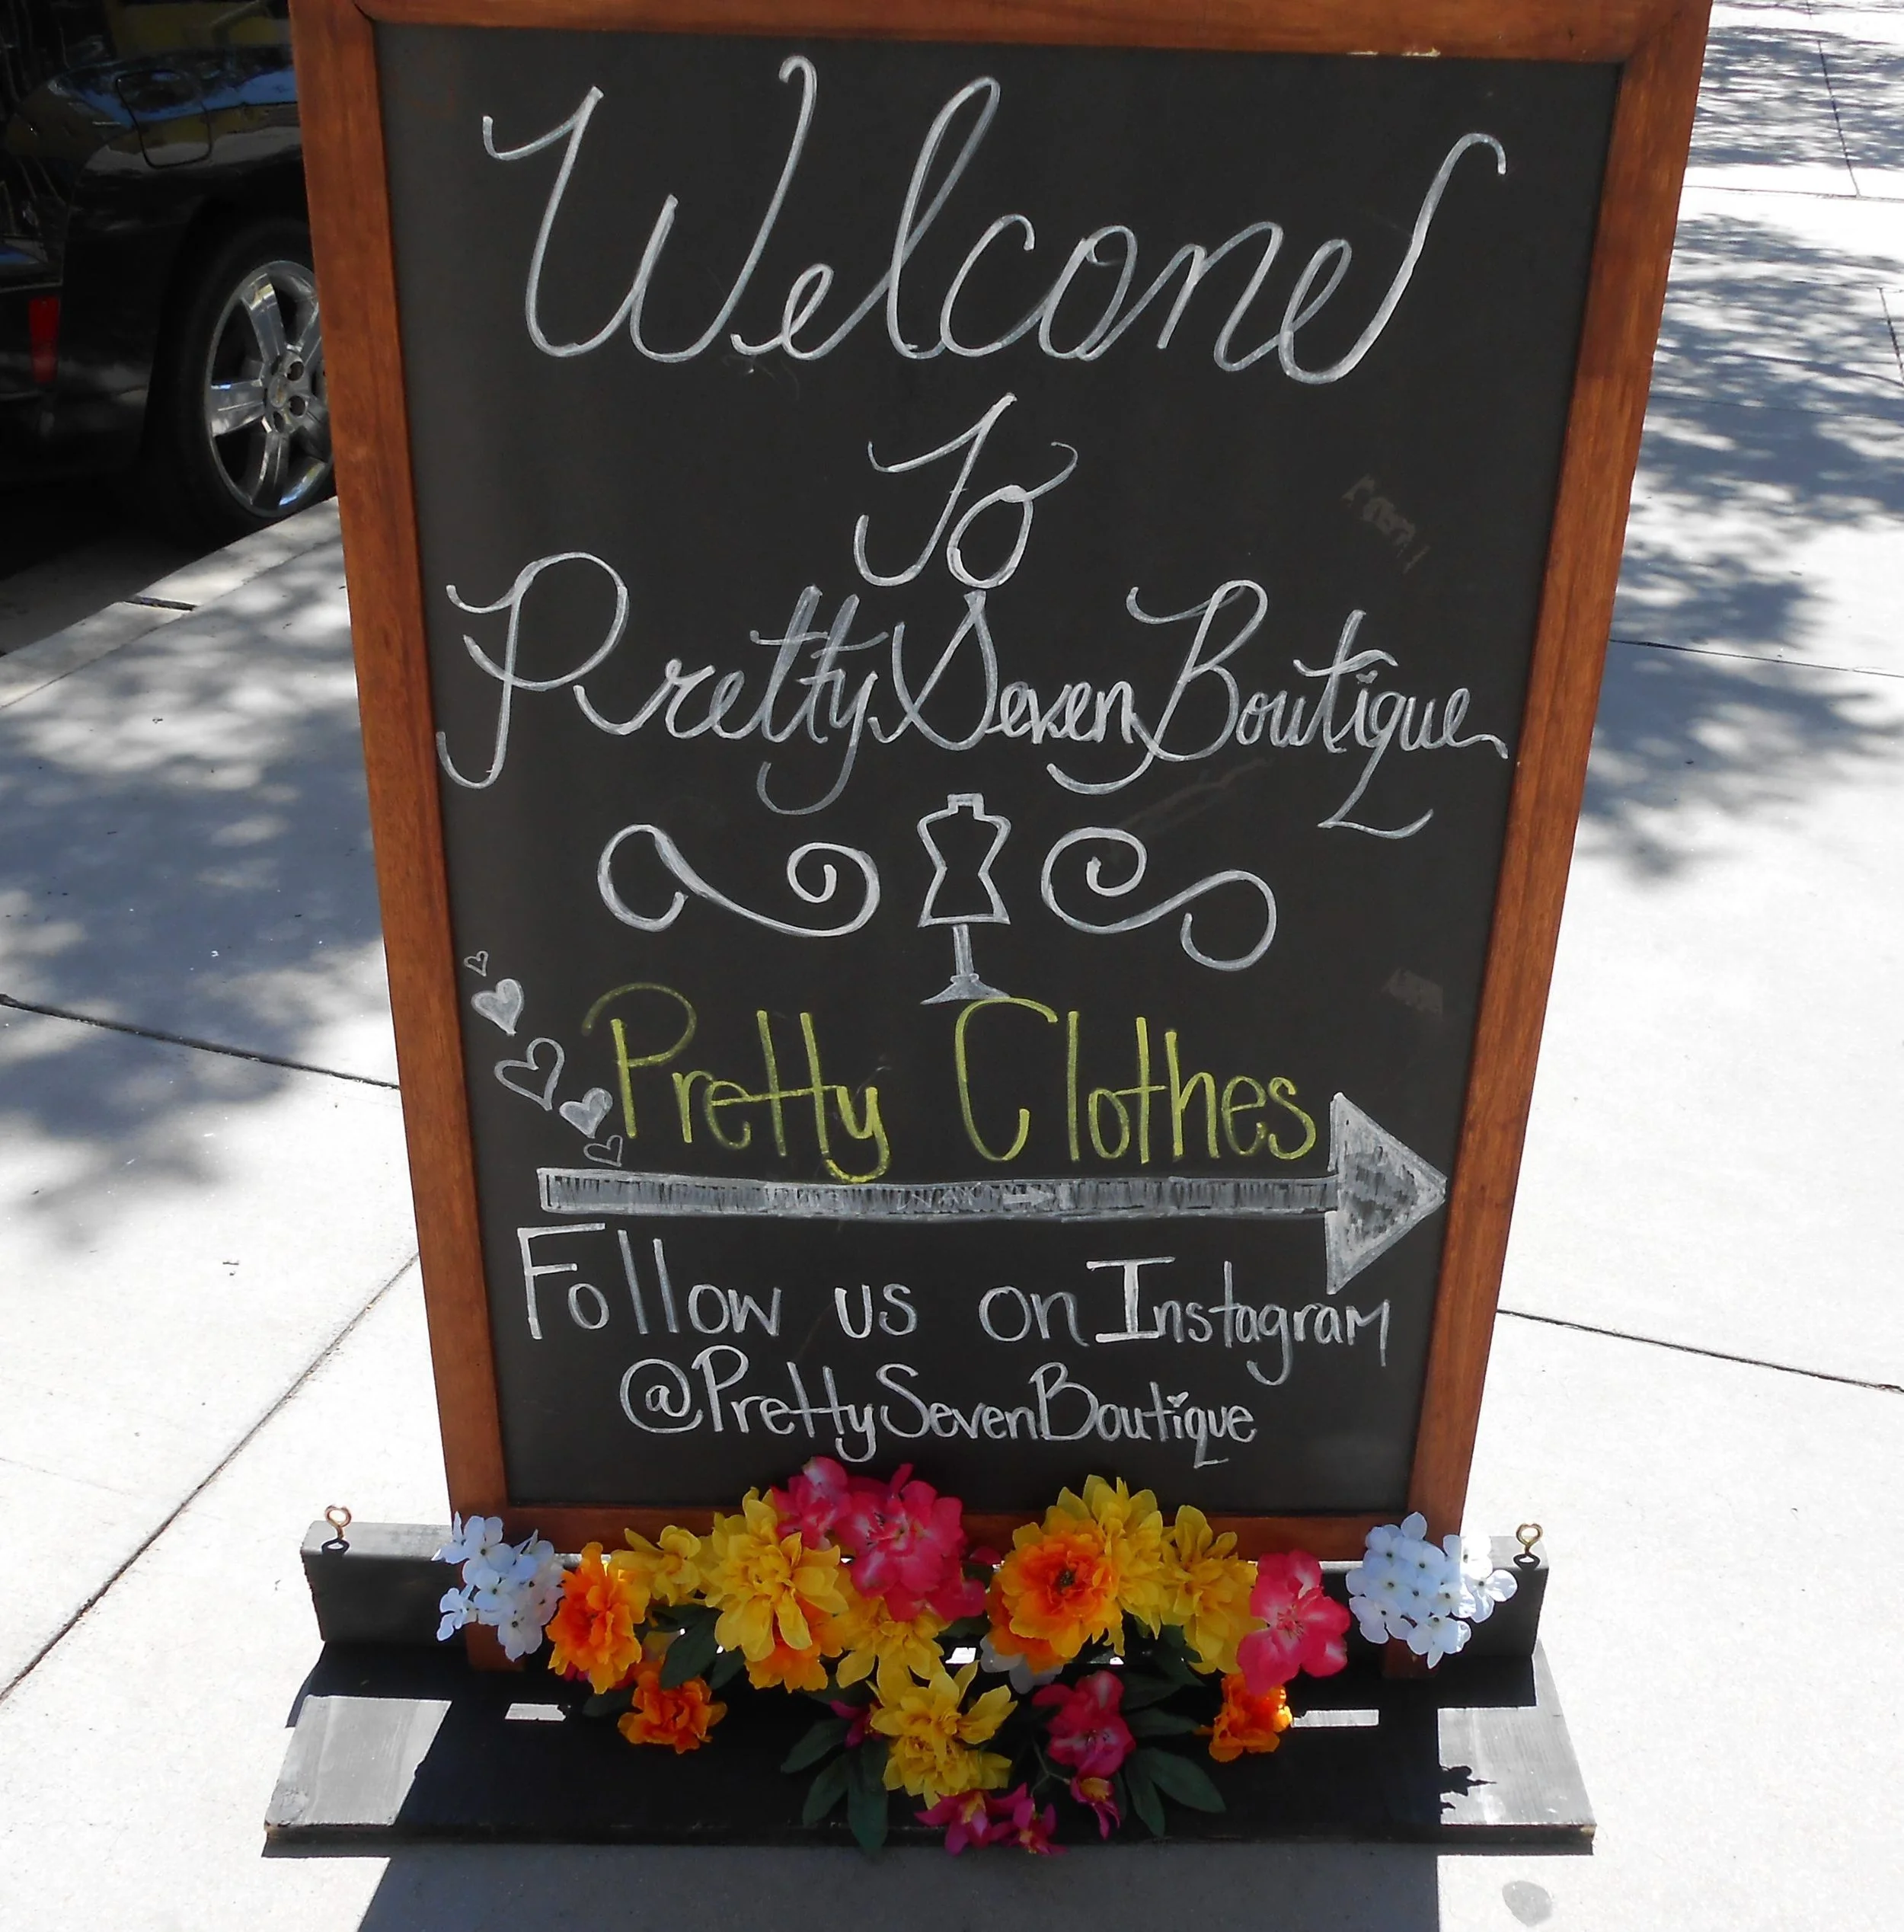 Welcome
To
Pretty Seven Boutique
Pretty Clothes
Follow us on Instagram
@PrettySevenBoutique